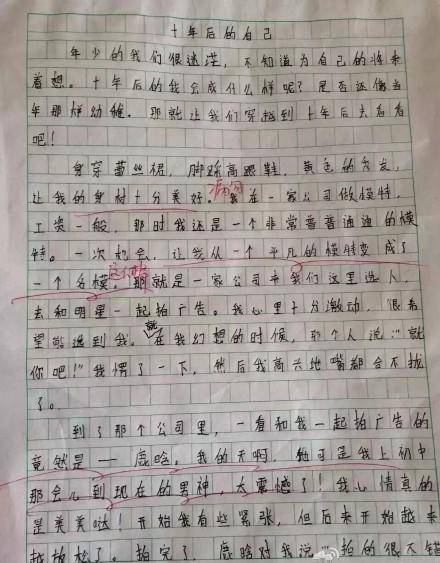 十年后的自己
年少的我们很迷茫，不知道为自己的将来
着想。十年后的我会成什么样呢？是否还像当
年那样幼稚。那就让我们穿越到十年后去看看
吧！
身穿蕾丝裙，脚踩高跟鞋，黄色的头发，
让我的身材十分美好。我在一家公司做模特，
工资一般，那时我还是一个非常普普通通的模
特。一次机会，让我从一个平凡的模特变成了
一个名模。那就是一家公司来我们这里选人，
去和明星一起拍广告。我心里十分激动，很希
望能选到我。就在我幻想的时候，那个人说：“就
你吧！”我愣了一下，然后我高兴地嘴都合不拢
了。
到了那个公司里，一看和我一起拍广告的
竟然是——鹿晗。我的天啊，他可是我上初中
那会儿到现在的男神，太震憾了！我心情真的
是美美哒！开始我有些紧张，但后来开始越来
越放松了。拍完了，鹿晗对我说：“拍的很不错